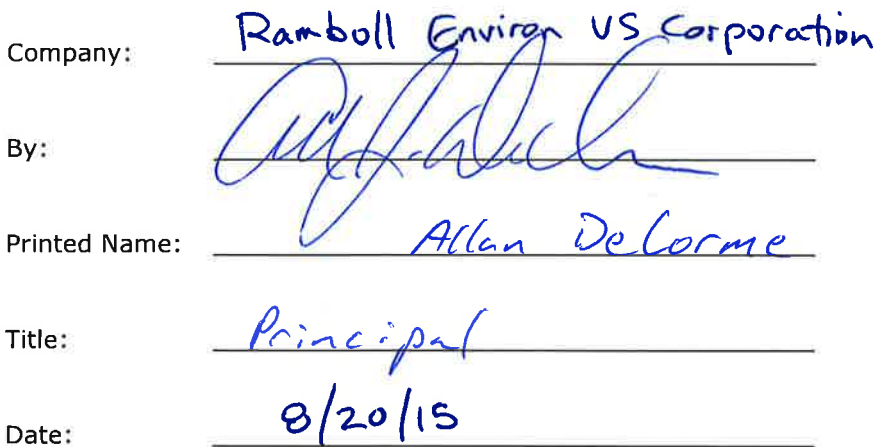 Company: Ramboll Environ US Corporation
By:
Printed Name: Allan DeLorme
Title: Principal
Date: 8/20/15